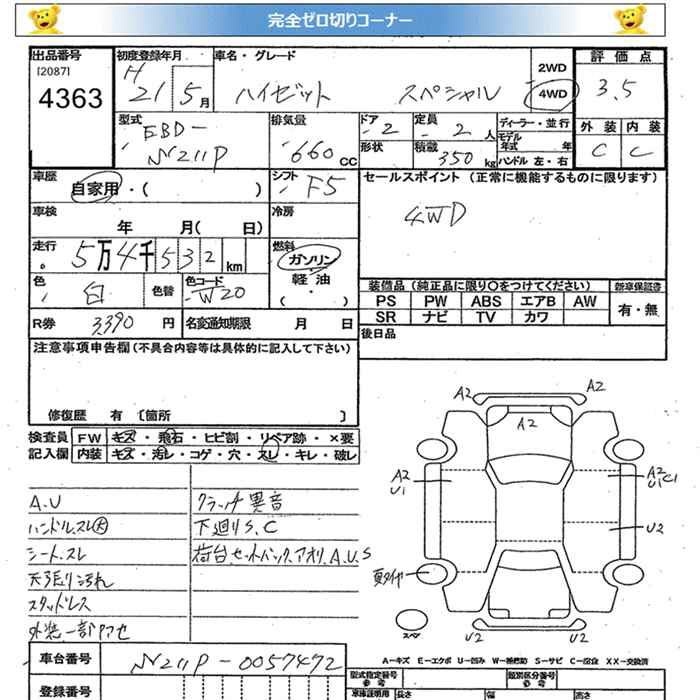 完全ゼロ切りコーナー
出品番号
[2087]
4363
初度登録年月
H 21 5月
車名・グレード
ハイゼット スペシャル
2WD
4WD
評価点
3.5
外装 内装
C C
型式
EBD-
排気量
660 CC
ドア
2
定員
2 人
ディーラー・並行
モデル年式 年
形状
積載
350 kg
ハンドル 左・右
車歴
自家用・( )
シフト
F5
セールスポイント (正常に機能するものに限ります)
4WD
車検
年 月( 日)
冷房
走行
5万4千532 km
燃料
ガソリン
軽油
・( )
色
白
色替
色コード
W20
装備品 (純正品に限り○をつけてください) 新車保証書
PS PW ABS エアB AW 有・無
SR ナビ TV カワ
R券 3390 円
名変通知期限 月 日
後日品
注意事項申告欄 (不具合内容等は具体的に記入して下さい)
修復歴 有 〔箇所 〕
検査員 FW キズ・飛石・ヒビ割・リペア跡・×要
記入欄 内装 キズ・汚レ・コゲ・穴・スレ・キレ・破レ
A.U
ハンドル.スレ大
シート.スレ
天張り汚れ
スタッドレス
外装一部アセ
クラッチ異音
下廻りS.C
荷台.セットバック.アオリ.A.U.S
A2 A2
A2
A2
U1
A2
U1C1
U2
夏タイヤ
スペア
U2 U2
A-キズ E-エクボ U-凹み S-サビ C-腐食 XX-交換済
車台番号
登録番号
型式指定番号
類別区分番号
車庫証明用
長さ 幅 高さ